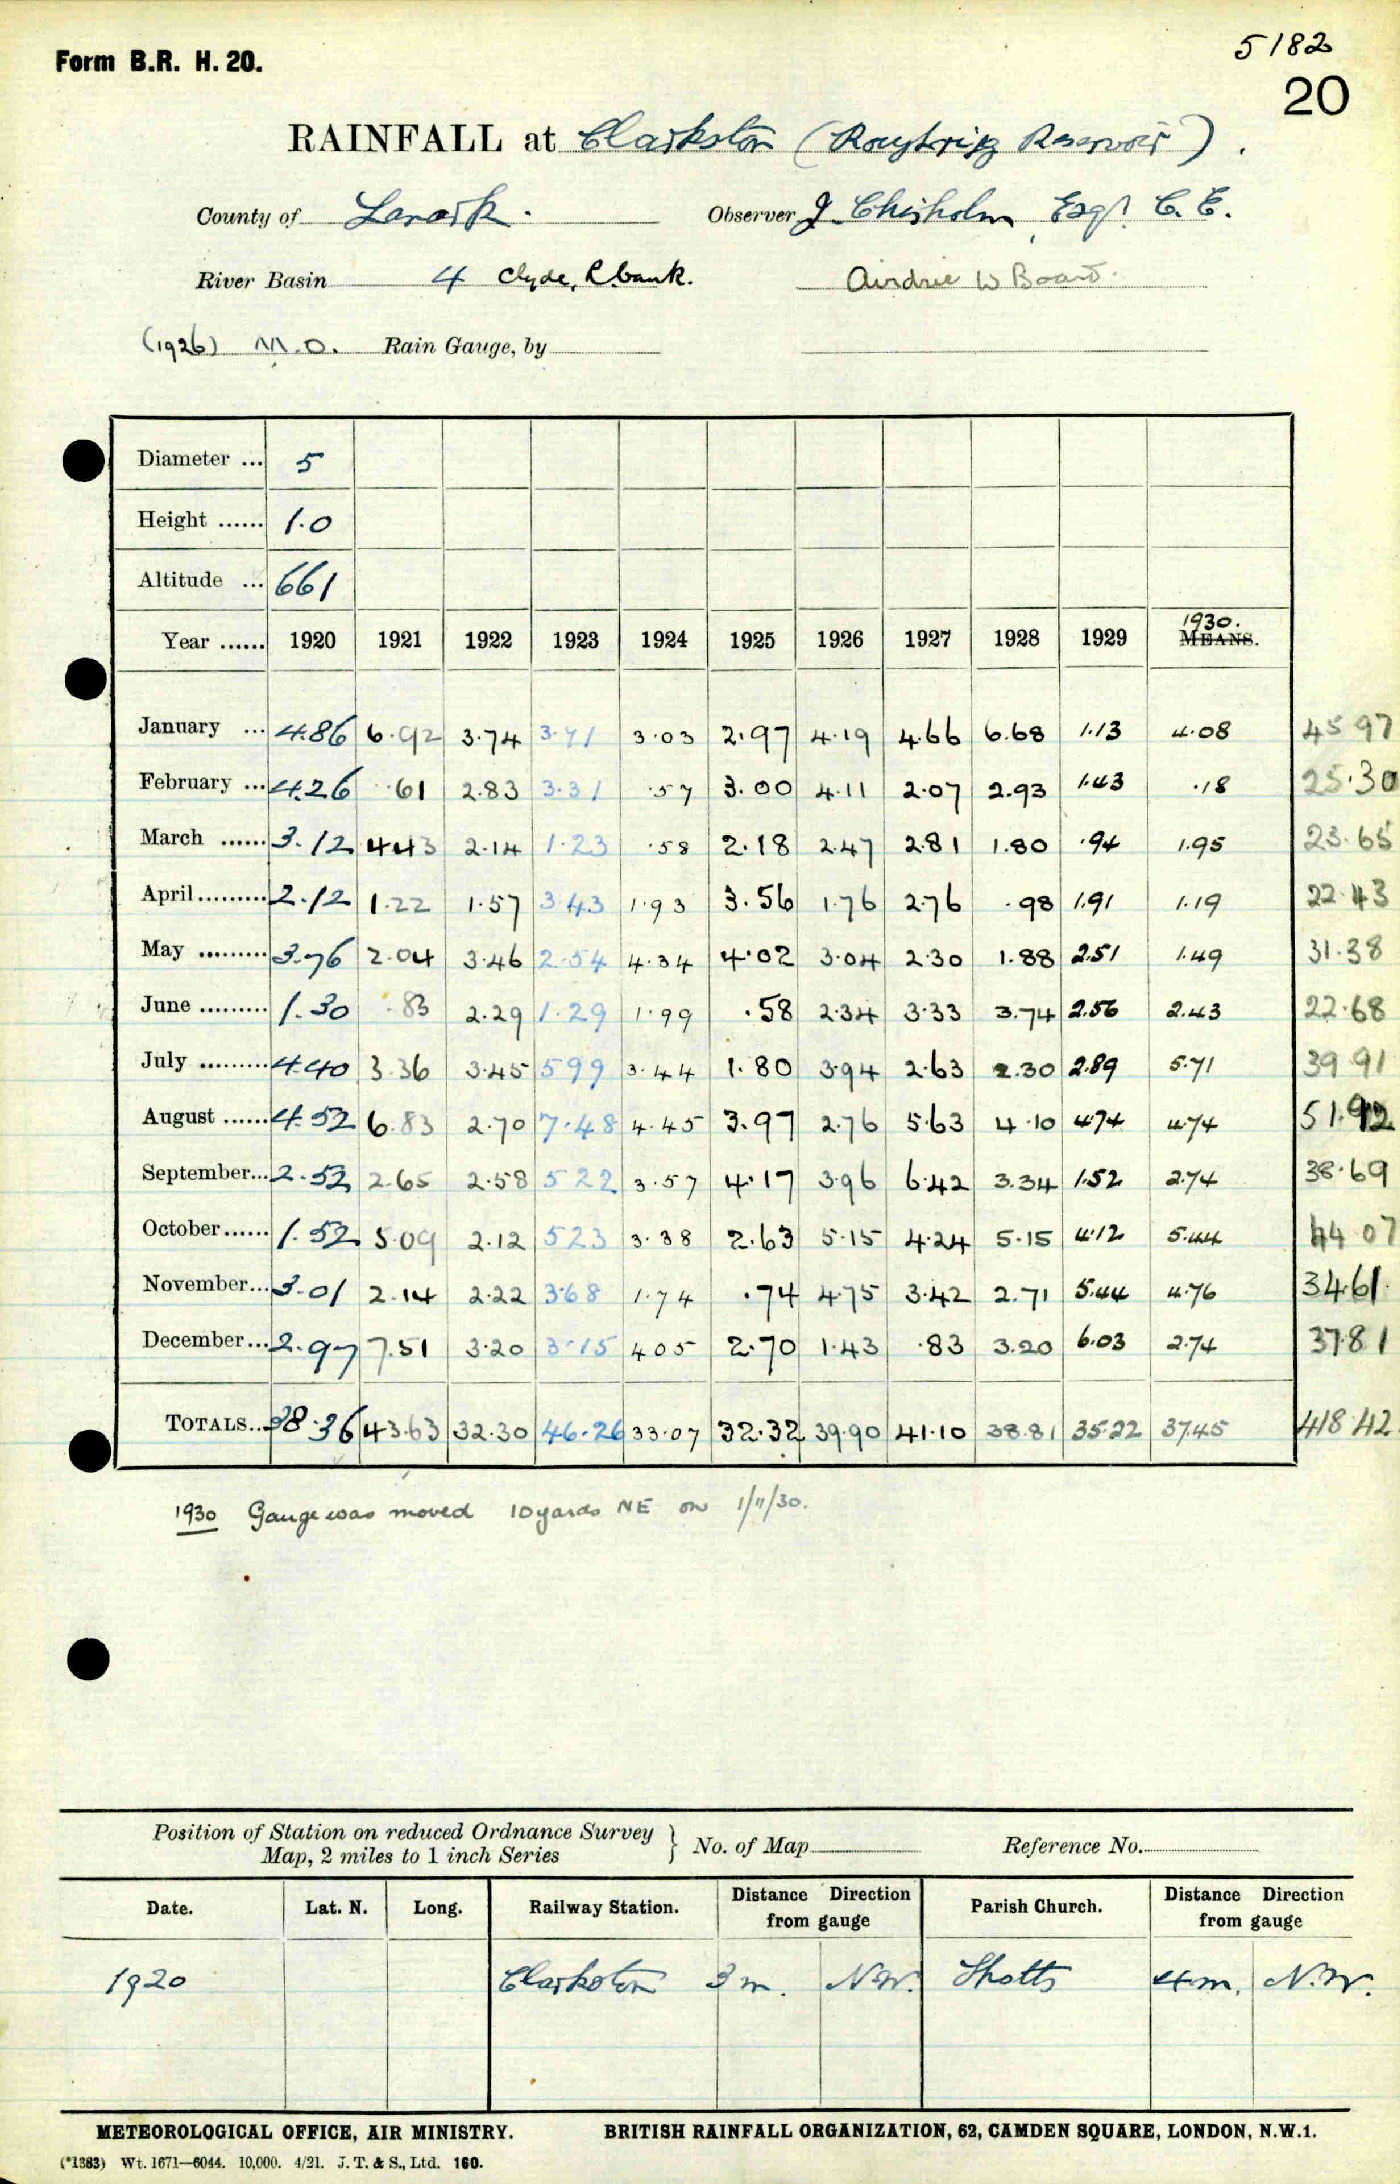 Form B.R. H. 20.
5182
20
RAINFALL at Clarkston (Roughrigg Reservoir).
County of Lanark. Observer J. Chisholm, Esqr. C.E.
River Basin 4 Clyde, R. bank. Airdrie W Board.
(1926) M.O. Rain Gauge, by
Diameter ... 5
Height ...... 1.0
Altitude ... 661
1930.
Year ...... 1920 1921 1922 1923 1924 1925 1926 1927 1928 1929 MEANS.
January ... 4.86 6.92 3.74 3.71 3.03 2.97 4.19 4.66 6.68 1.13 4.08 45.97
February ... 4.26 .61 2.83 3.31 .57 3.00 4.11 2.07 2.93 1.43 .18 25.30
March ...... 3.12 4.43 2.14 1.23 .58 2.18 2.47 2.81 1.80 .94 1.95 23.65
April ......... 2.12 1.22 1.57 3.43 1.93 3.56 1.76 2.76 .98 1.91 1.19 22.43
May ......... 3.76 2.04 3.46 2.54 4.34 4.02 3.04 2.30 1.88 2.51 1.49 31.38
June ......... 1.30 .83 2.29 1.29 1.99 .58 2.34 3.33 3.74 2.56 2.43 22.68
July ......... 4.40 3.36 3.45 5.99 3.44 1.80 3.94 2.63 2.30 2.89 5.71 39.91
August ...... 4.52 6.83 2.70 7.48 4.45 3.97 2.76 5.63 4.10 4.74 4.74 51.92
September ... 2.52 2.65 2.58 5.22 3.57 4.17 3.96 6.42 3.34 1.52 2.74 38.69
October ...... 1.52 5.09 2.12 5.23 3.38 2.63 5.15 4.24 5.15 4.12 5.44 44.07
November ... 3.01 2.14 2.22 3.68 1.74 .74 4.75 3.42 2.71 5.44 4.76 34.61
December ... 2.97 7.51 3.20 3.15 4.05 2.70 1.43 .83 3.20 6.03 2.74 37.81
TOTALS.. 38.36 43.63 32.30 46.26 33.07 32.32 39.90 41.10 38.81 35.22 37.45 418.42
1930 Gauge was moved 10 yards NE on 1/11/30.
Position of Station on reduced Ordnance Survey
Map, 2 miles to 1 inch Series } No. of Map Reference No.
Date. Lat. N. Long. Railway Station. Distance Direction from gauge Parish Church. Distance Direction from gauge
1920 Clarkston 3 m. N.W. Shotts 4 m. N.W.
METEOROLOGICAL OFFICE, AIR MINISTRY. BRITISH RAINFALL ORGANIZATION, 62, CAMDEN SQUARE, LONDON, N.W.1.
(*1383) Wt. 1671—6044. 10,000. 4/21. J. T. & S., Ltd. 160.